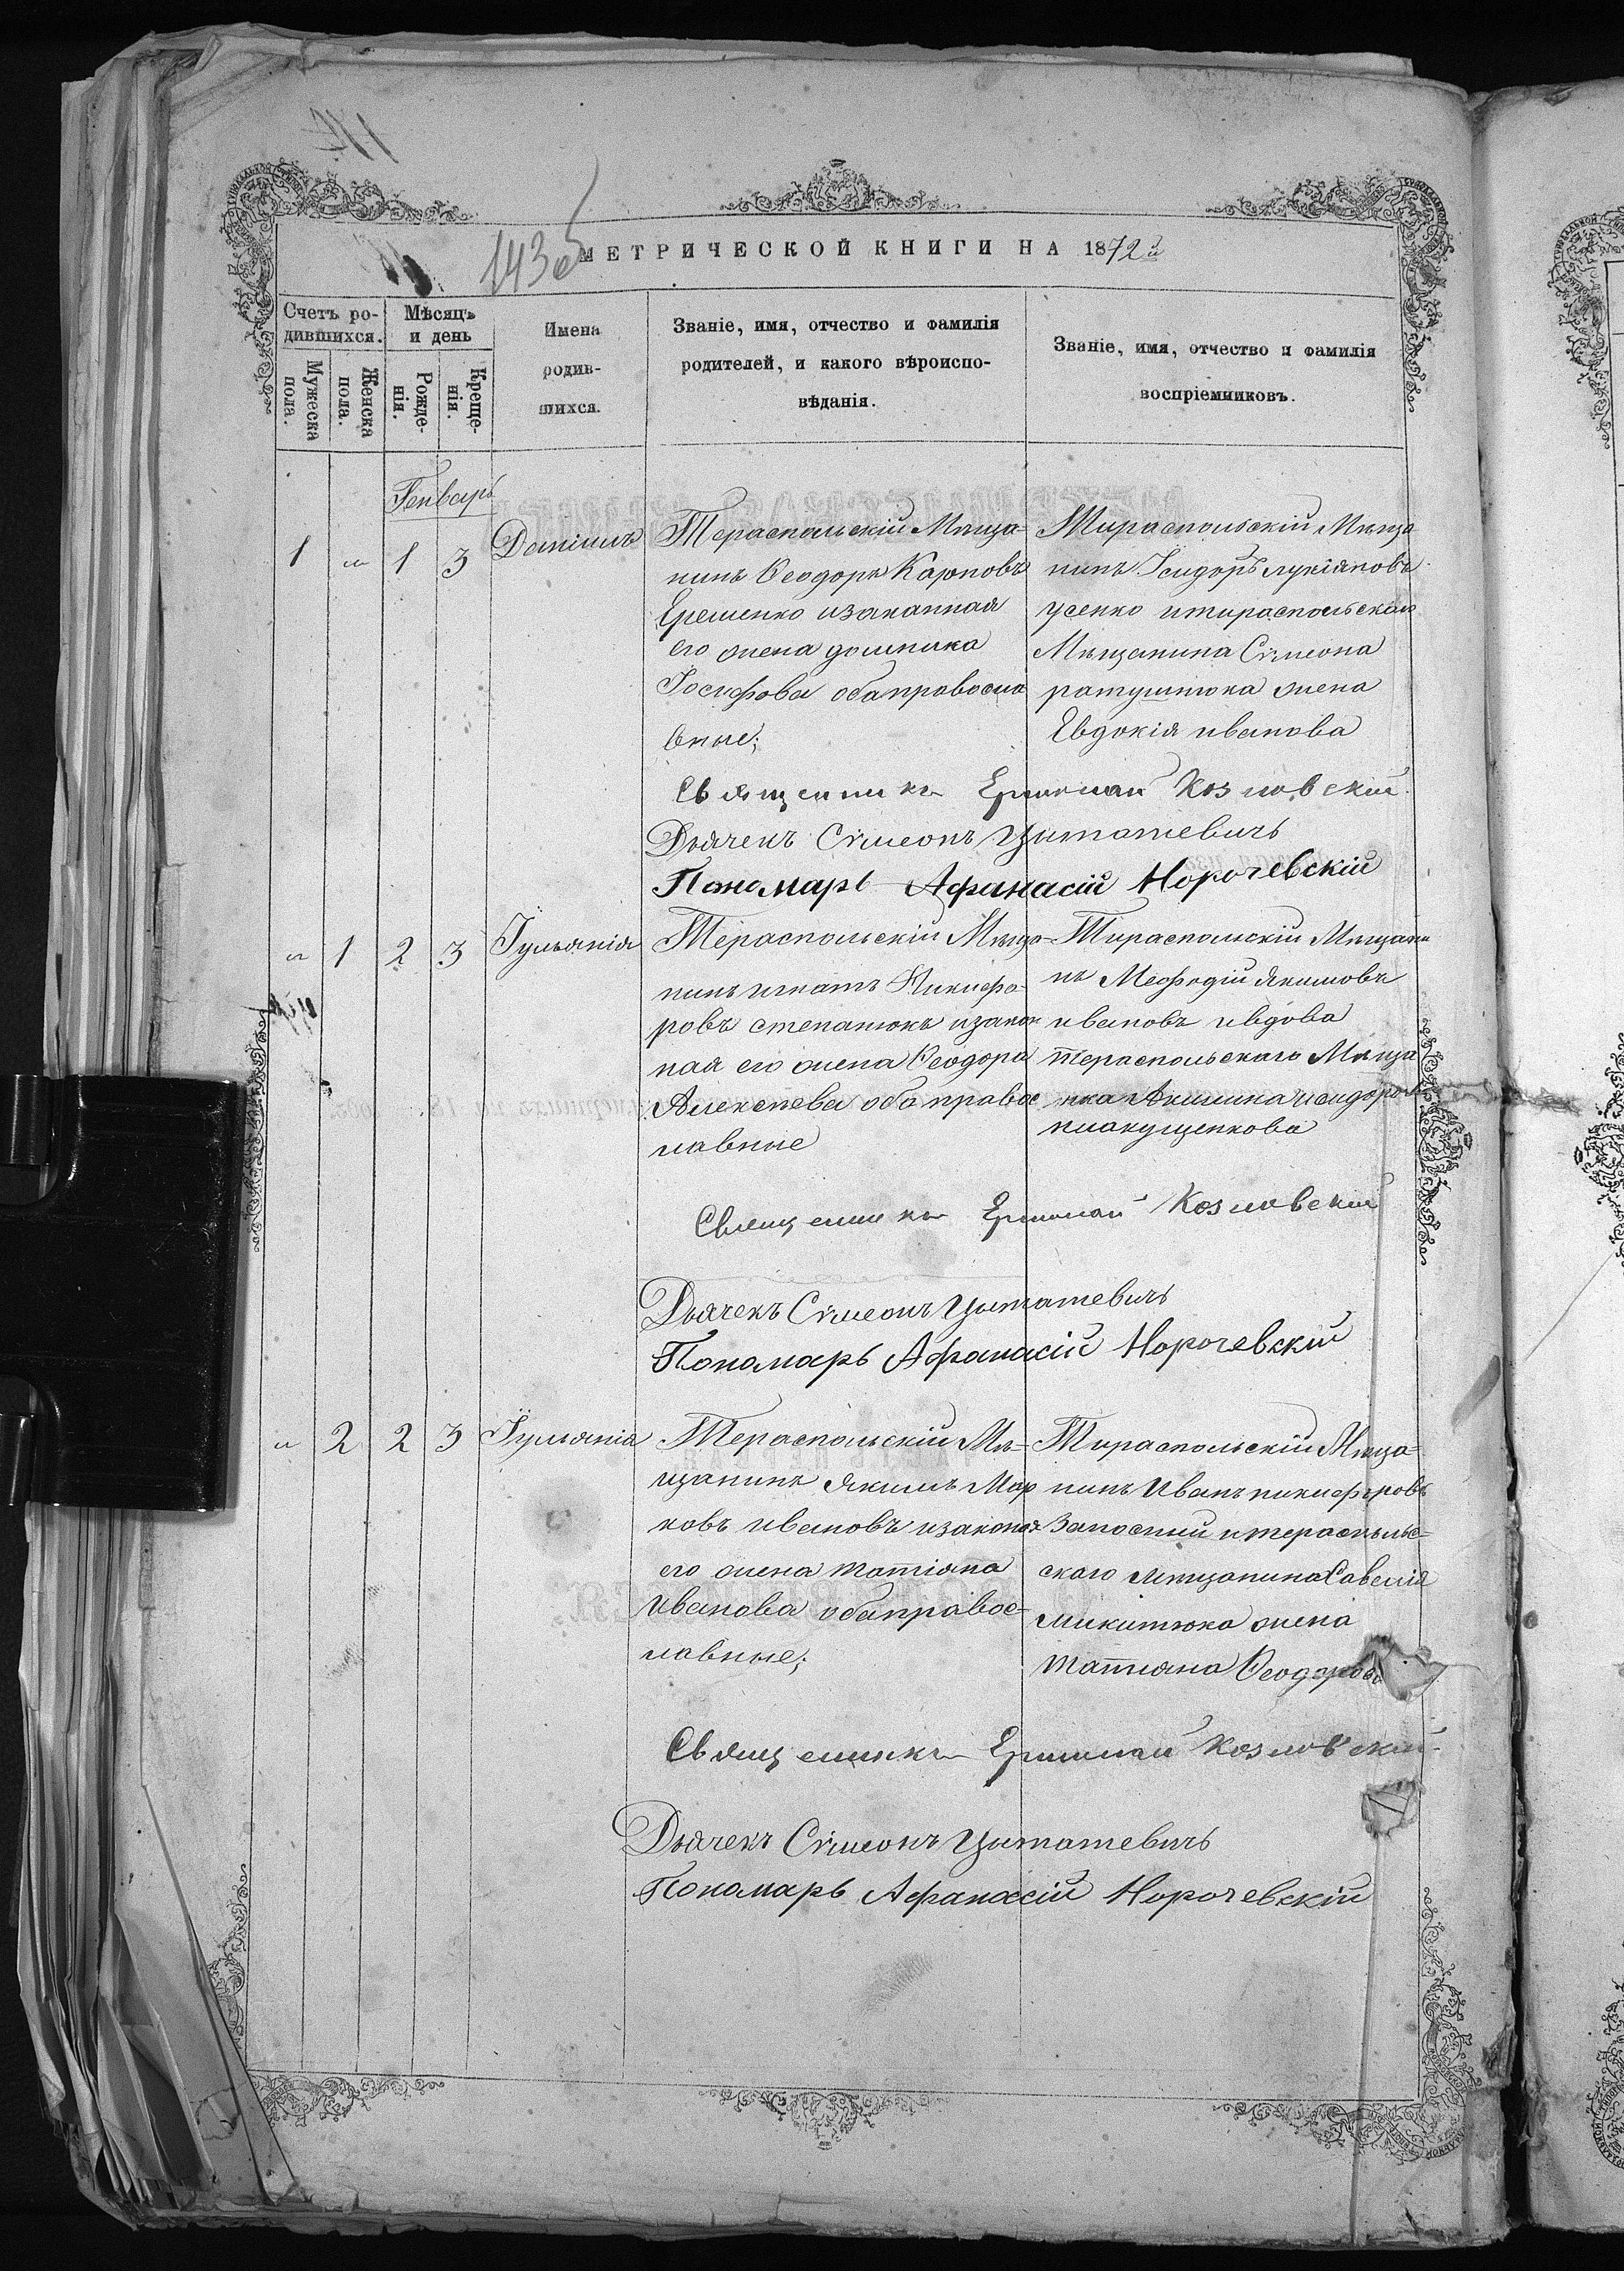 143 об
МЕТРИЧЕСКОЙ КНИГИ НА 1872й
Счетъ ро-
дившихся.
Мужеска пола.
Женска пола.
Мѣсяцъ
и день
Рожде-
нія.
Креще-
нія.
Имена
родив-
шихся.
Званіе, имя, отчество и фамилія
родителей, и какого вѣроиспо-
вѣданія.
Званіе, имя, отчество и фамилія
воспріемниковъ.
Генварь
1 " 1 3 Даніилъ
Тераспольскій Мѣща-
нинъ Ѳеодоръ Карповъ
Ерешенко изаканная
его жена домника
Іосифова обаправосла
вные;
Тираспольскій Мѣща
нинъ Ісидоръ лукіяновъ
усенко итираспольскаго
Мѣщанина Сѵмеона
ратушнюка жена
Евдокія иванова
Священникъ Ермолай Козловскій
Дьячекъ Сѵмеонъ Цытатевичъ
Пономарь Афанасій Норочевскій
" 1 2 3 Іульянія
Тераспольскій Мѣща-
нинъ игнатъ Никифо-
ровъ степанюкъ изакон
ная его жена Ѳеодора
Алексѣева оба правос
лавные
Тираспольскій Мѣщани
нъ Мефодій Якимовъ
ивановъ ивдова
тераспольскаго Мѣща
нка Акилина исидорова
Священникъ Ермолай Козловскій
Дьячекъ Сѵмеонъ Цытатевичъ
Пономарь Афанасій Норочевскій
" 2 2 3 Іульянія
Тераспольскій Мѣ-
щанинъ Якимъ Мар
ковъ ивановъ изаконая
его жена татіяна
иванова обаправос-
лавные;
Тираспольскій Мѣща-
нинъ Иванъ никифоровъ
итераспольс-
скаго мѣщанина Савелія
микитюка жена
татияна Ѳеодорова
Священникъ Ермолай Козловскій
Дьячекъ Сѵмеонъ Цытатевичъ
Пономарь Афанасій Норочевскій